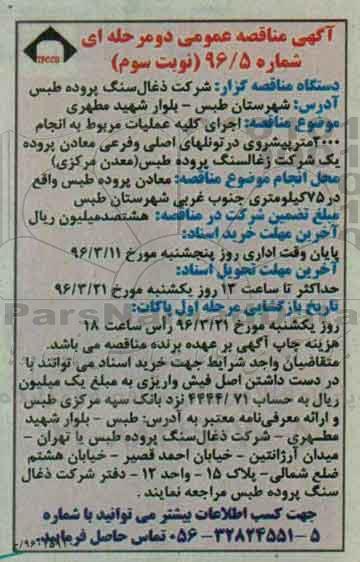 آگهی مناقصه عمومی دومرحله ای
شماره ۹۶/۵ (نوبت سوم)
IPCCO
دستگاه مناقصه گزار: شرکت ذغال‌سنگ پروده طبس
آدرس: شهرستان طبس - بلوار شهید مطهری
موضوع مناقصه: اجرای کلیه عملیات مربوط به انجام
۲۰۰۰مترپیشروی درتونلهای اصلی وفرعی معادن پروده
یک شرکت زغالسنگ پروده طبس(معدن مرکزی)
محل انجام موضوع مناقصه: معادن پروده طبس واقع
در۷۵کیلومتری جنوب غربی شهرستان طبس
مبلغ تضمین شرکت در مناقصه: هشتصدمیلیون ریال
آخرین مهلت خرید اسناد:
پایان وقت اداری روز پنجشنبه مورخ ۹۶/۳/۱۱
آخرین مهلت تحویل اسناد:
حداکثر تا ساعت ۱۳ روز یکشنبه مورخ ۹۶/۳/۲۱
تاریخ بازگشایی مرحله اول پاکات:
روز یکشنبه مورخ ۹۶/۳/۲۱ رأس ساعت ۱۸
هزینه چاپ آگهی بر عهده برنده مناقصه می باشد.
متقاضیان واجد شرایط جهت خرید اسناد می توانند با
در دست داشتن اصل فیش واریزی به مبلغ یک میلیون
ریال به حساب ۴۴۴۴/۷۱ نزد بانک سپه مرکزی طبس
و ارائه معرفی‌نامه معتبر به آدرس: طبس - بلوار شهید
مطهری - شرکت ذغال‌سنگ پروده طبس یا تهران -
میدان آرژانتین - خیابان احمد قصیر - خیابان هشتم
ضلع شمالی- پلاک ۱۵ - واحد ۱۲ - دفتر شرکت ذغال
سنگ پروده طبس مراجعه نمایند.
جهت کسب اطلاعات بیشتر می توانید با شماره
۵-۳۲۸۲۴۵۵۱-۰۵۶ تماس حاصل فرمایید.